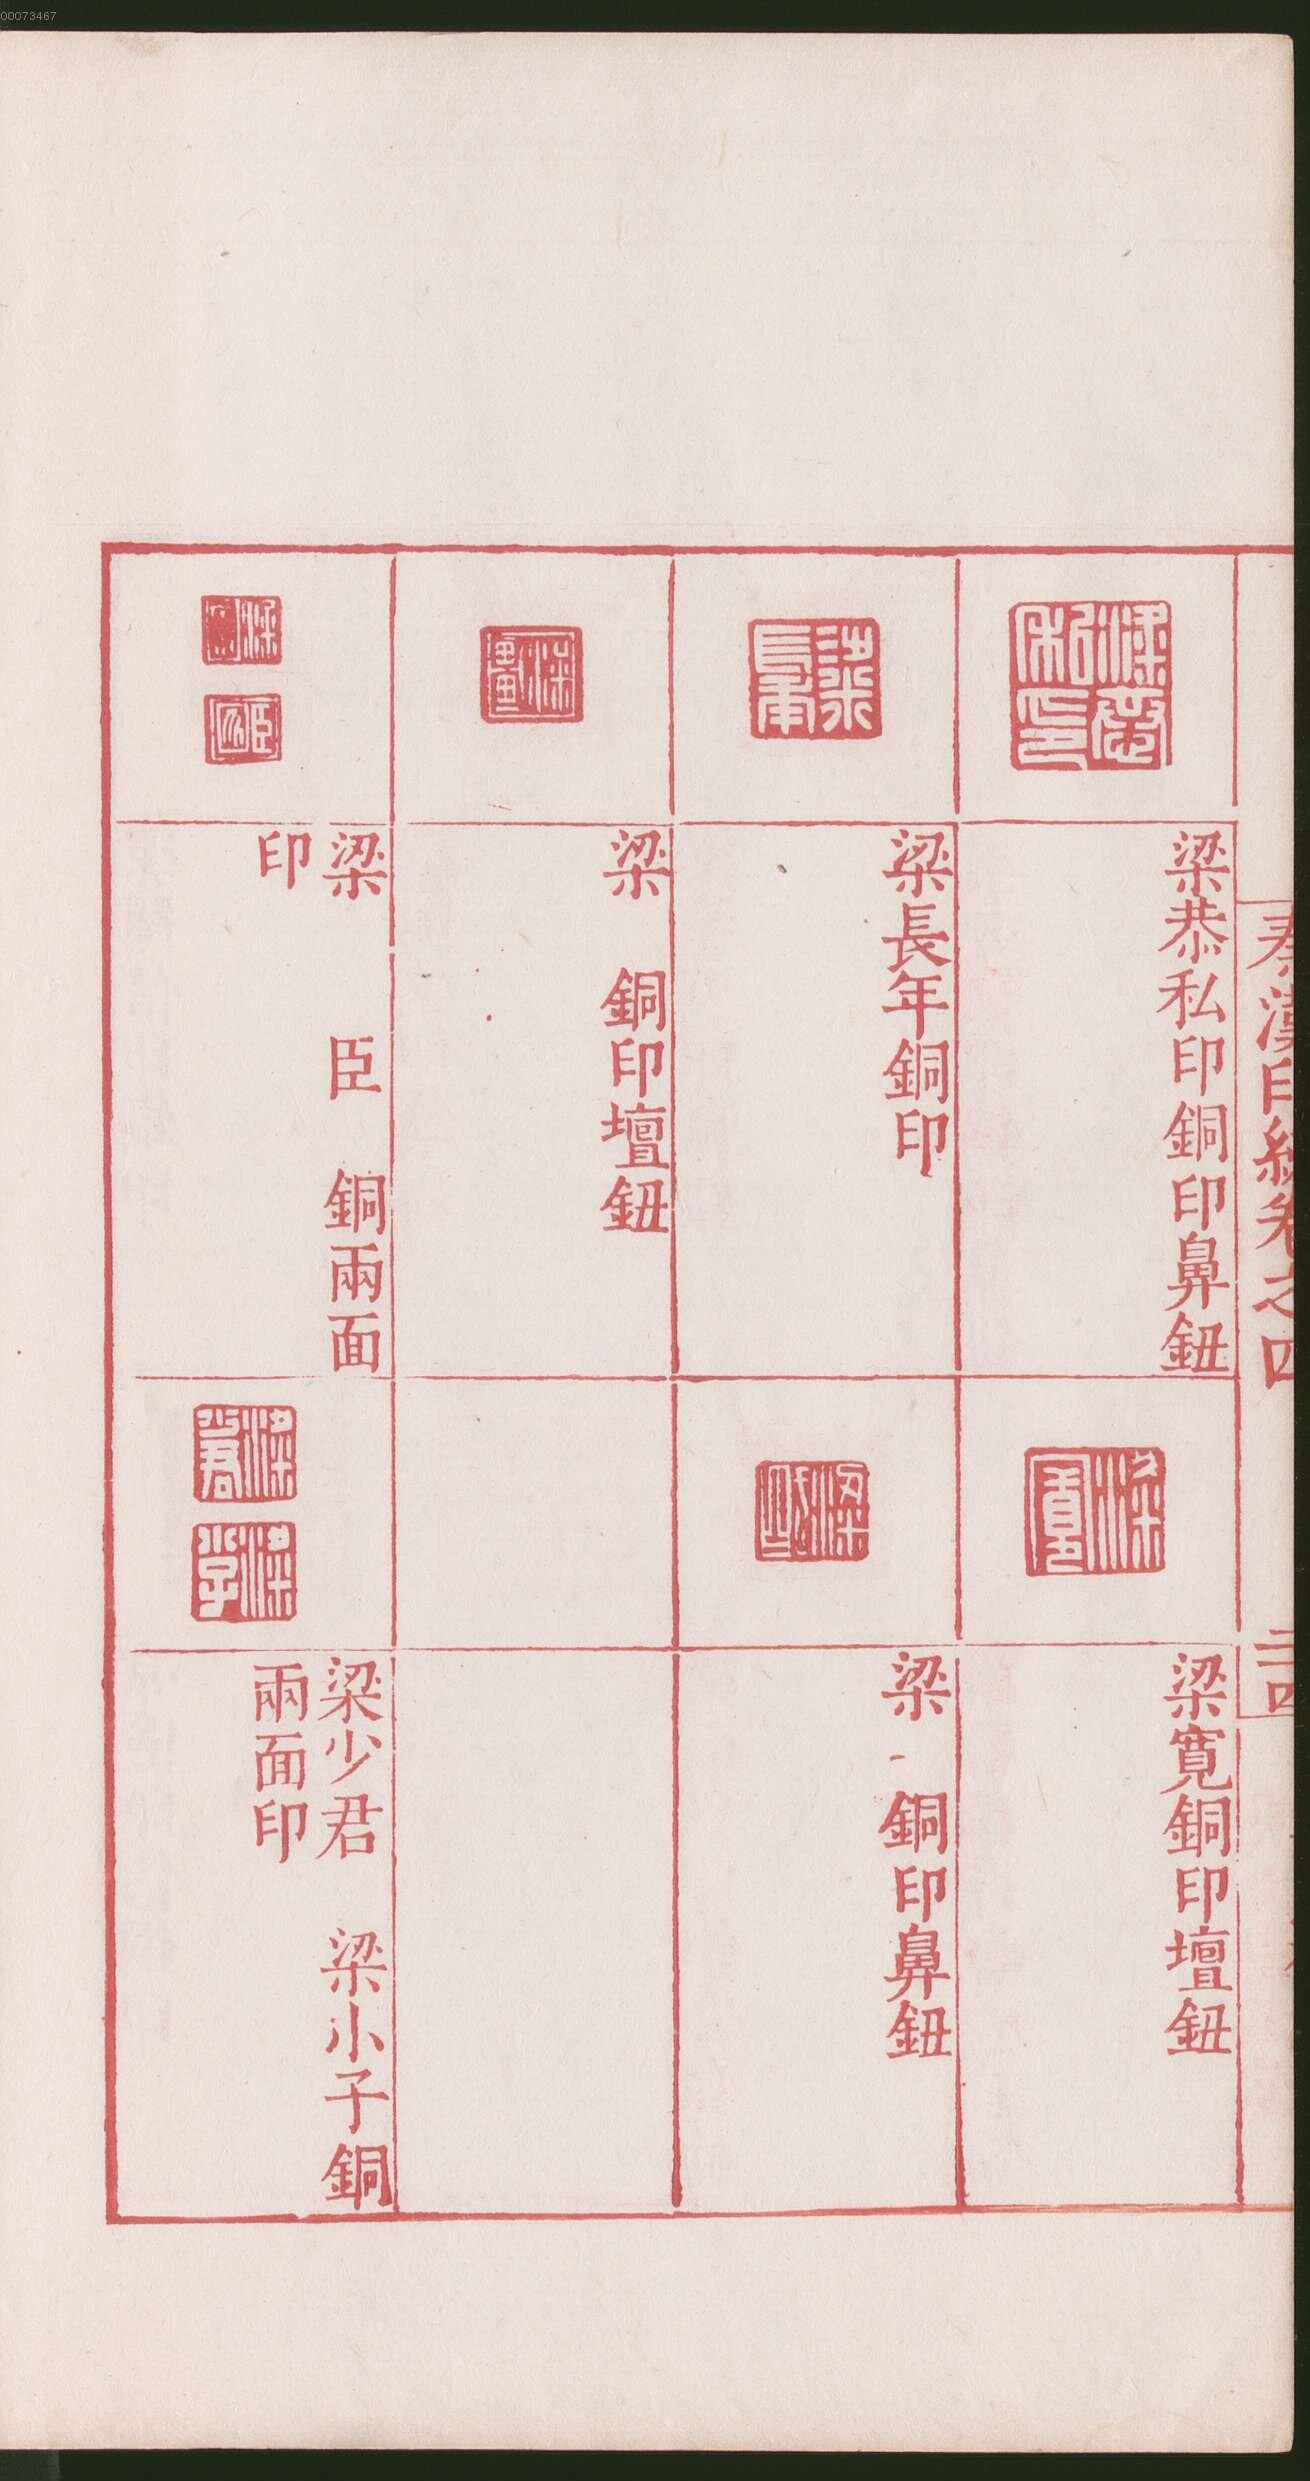 00073467
秦漢印統卷之四
二四
梁恭私印銅印鼻鈕
梁寬銅印壇鈕
梁長年銅印
梁 銅印鼻鈕
梁 銅印壇鈕
梁 臣 銅兩面
印
梁少君 梁小子銅
兩面印